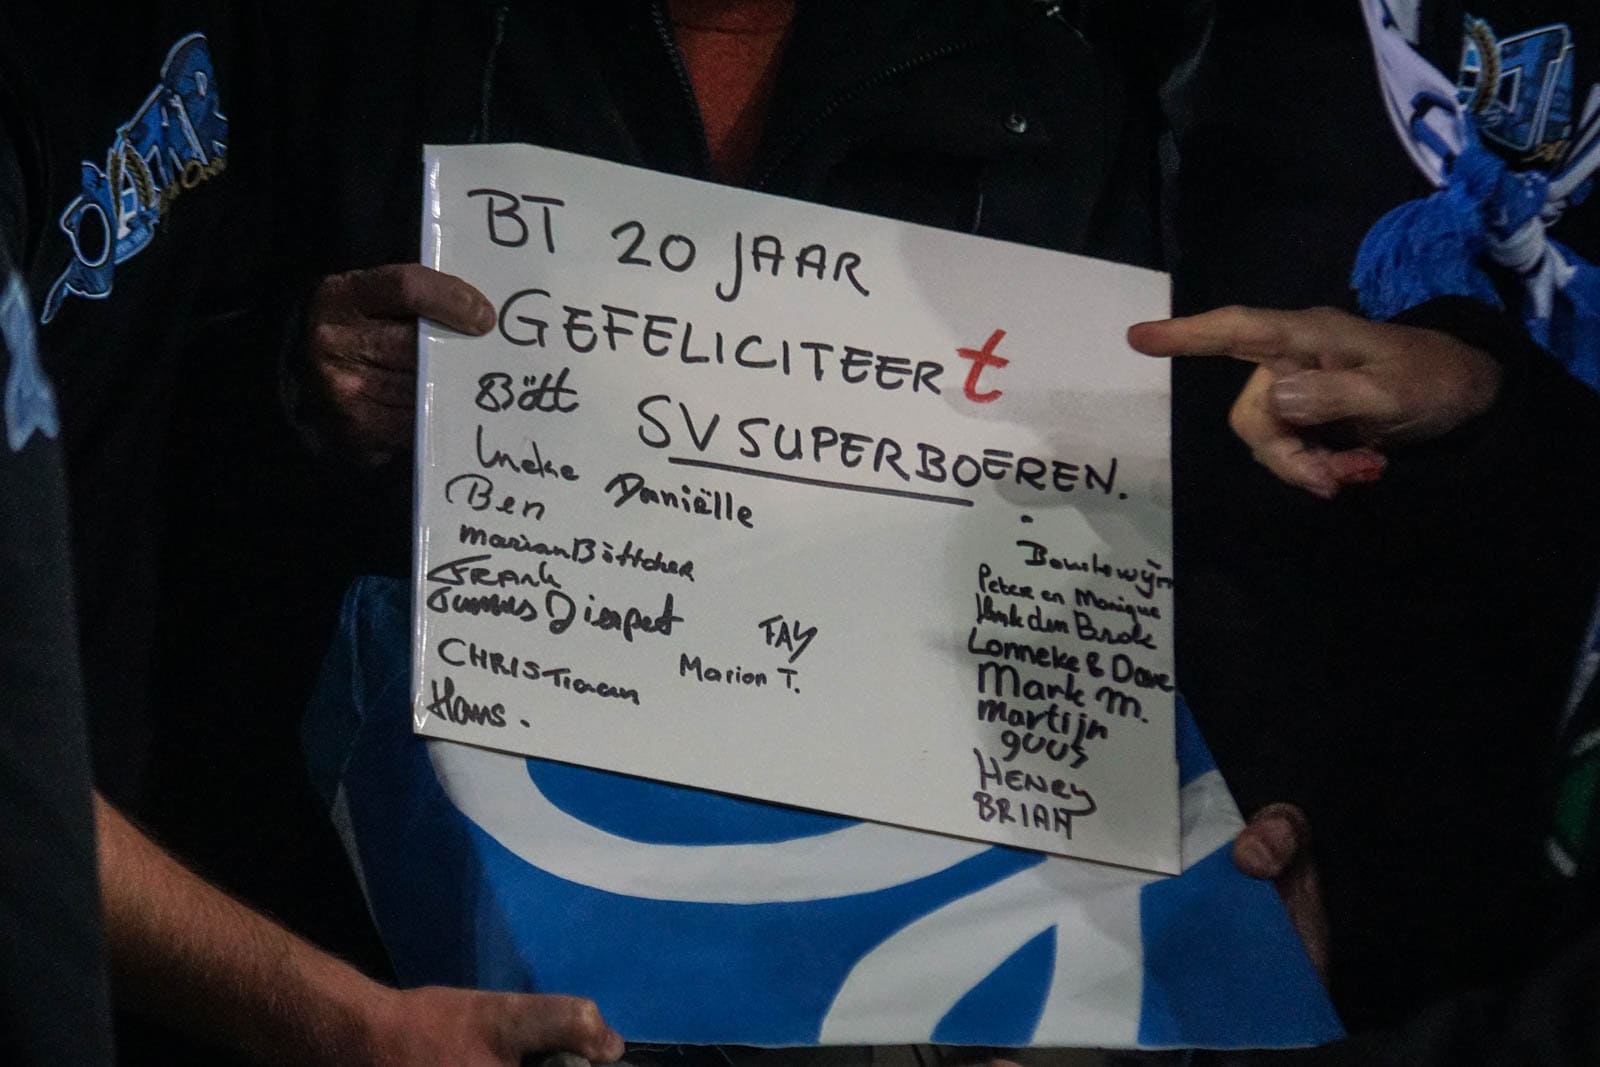 BT 20 JAAR
GEFELICITEERt
SV SUPERBOEREN.
Bött
Ineke
Daniëlle
Ben
Marian Böttcher
FRANK
Diepest
FAY
Marion T.
CHRISTIAAN
Hans.
Boudewijn
Peter en Monique
Henk den Brok
Lonneke & Dave
Mark M.
Martijn
guus
HENRY
BRIAN